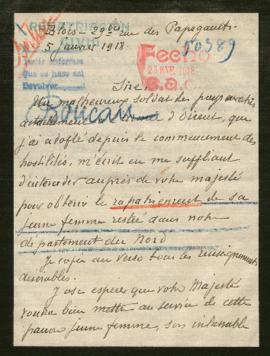 Blois - 29 rue des Papegaults
5 Janvier 1918.
50389
Fecho
25 ENE. 1918
Sire
Un malheureux soldat des pays envahis
actuellement d'Orient, que
j'ai adopté depuis le commencement des
hostilités, m'écrit en me suppliant
d'intercéder auprès de votre majesté
pour obtenir le rapatriement de sa
jeune femme restée dans notre
département du Nord
Je joins au verso tous les renseignements
désirables.
J'ose espérer que votre Majesté
voudra bien mettre au service de cette
pauvre jeune femme, son inlassable